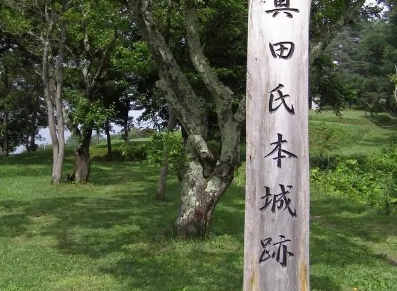 真田氏本城跡